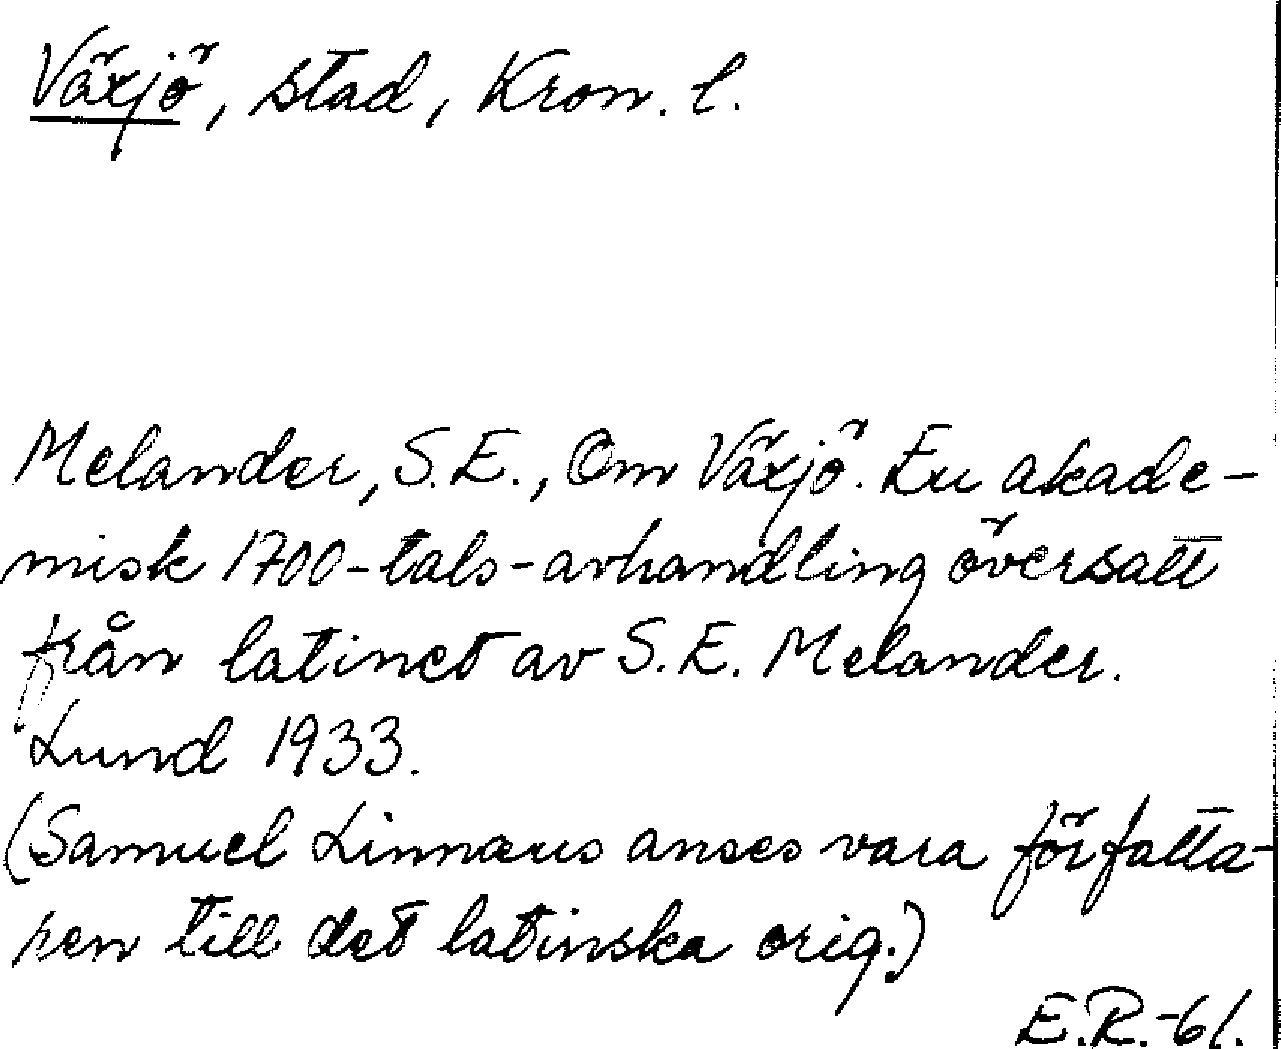 Växjö, stad, Kron. l.
Melander, S.E., Om Växjö. En akade-
misk 1700-tals-avhandling översatt
från latinet av S.E. Melander.
Lund 1933.
(Samuel Linnæus anses vara författa-
ren till det latinska orig.)
E.R.-61.